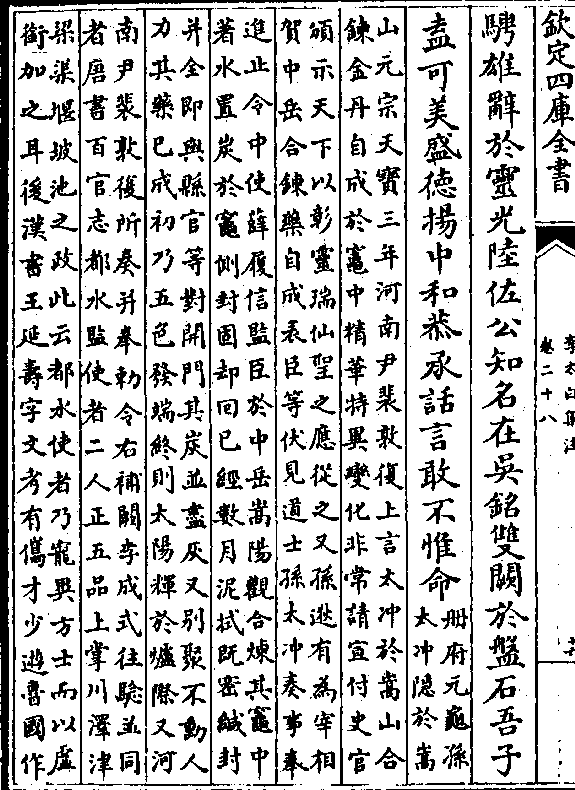 欽定四庫全書
李太白集注
卷二十八
騁雄辭於靈光陸佐公知名在吳銘雙闕於盤石吾子
盍可美盛德揚中和恭承話言敢不惟命
冊府元龜孫
太沖隱於嵩
山元宗天寶三年河南尹裴敦復上言太沖於嵩山合
鍊金丹自成於竈中精華特異變化非常請宣付史官
頒示天下以彰靈瑞仙聖之應從之又孫逖有為宰相
賀中岳合鍊藥自成表臣等伏見道士孫太沖奏事奉
進止令中使薛履信監臣於中岳嵩陽觀合煉其竈中
著水置炭於竈側封固却回已經數月泥拭既密緘封
并全即與縣官等對開門其炭並盡灰又別聚不動人
力其藥已成初乃五色發端終則太陽輝於爐際又河
南尹裴敦復所奏并奉勅令右補闕李成式往驗並同
者唐書百官志都水監使者二人正五品上掌川澤津
梁渠堰坡池之政此云都水使者乃寵異方士而以虛
銜加之耳後漢書王延壽字文考有儁才少遊魯國作